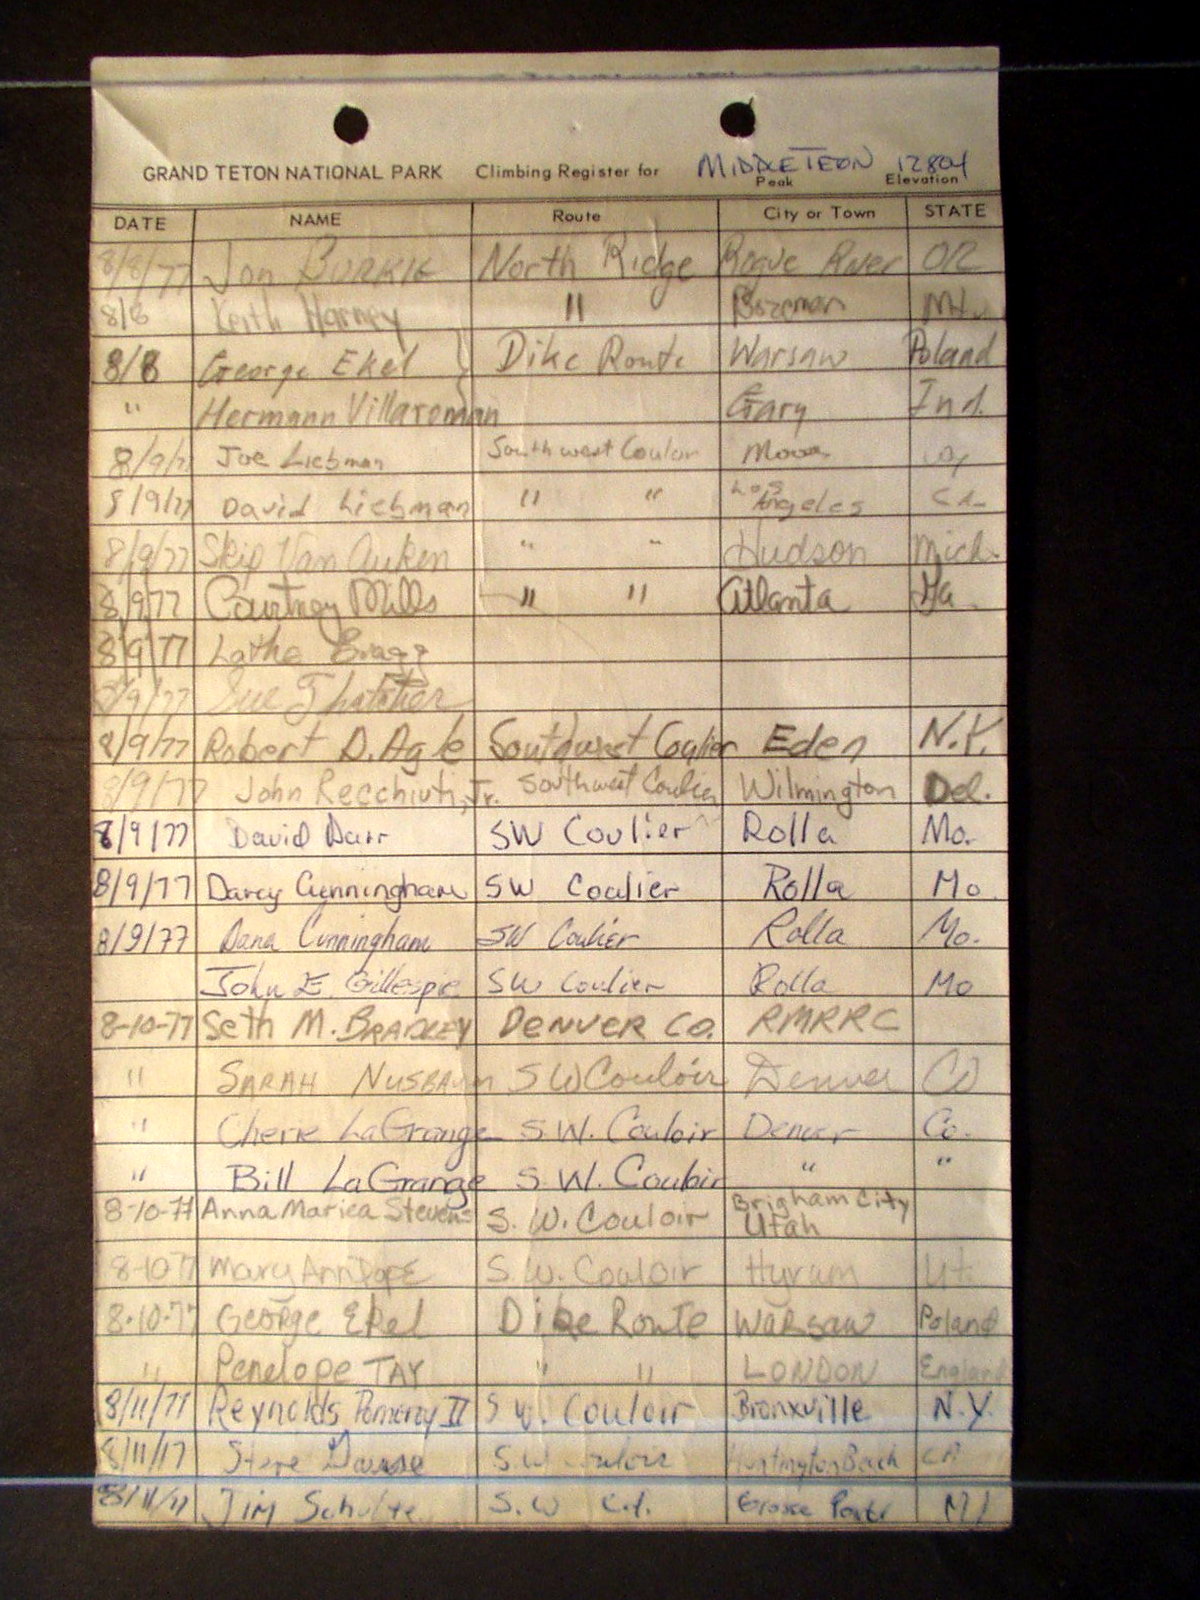 GRAND TETON NATIONAL PARK Climbing Register for MIDDLE TETON 12804
Peak Elevation
DATE NAME Route City or Town STATE
8/8/77 Jon BURKIE North Ridge Rogue River OR
8/8 Keith Harney " Bozeman Mt.
8/8 George Ekel Dike Route Warsaw Poland
" Hermann Villaroman Gary Ind.
8/9/77 Joe Liebman Southwest Couloir Moose Wy
8/9/77 David Liebman " " Los Angeles CA
8/9/77 Skip Van Auken " " Hudson Mich.
8/9/77 Courtney Mills " " Atlanta Ga.
8/9/77 Lathe Bragg
8/9/77 Sue Thatcher
8/9/77 Robert D. Agle Southwest Coulier Eden N.Y.
8/9/77 John Recchiuti, Jr. Southwest Coulier Wilmington Del.
8/9/77 David Darr SW Coulier Rolla Mo.
8/9/77 Darcy Cunningham SW Coulier Rolla Mo.
8/9/77 Dana Cunningham SW Coulier Rolla Mo.
John E. Gillespie SW Coulier Rolla Mo
8-10-77 Seth M. BRADLEY DENVER CO. RMRRC
" SARAH NUSBAUM SW Couloir Denver CO
" Cherie LaGrange S.W. Couloir Denver Co.
" Bill LaGrange S.W. Couloir " "
8-10-77 Anna Marica Stevens S.W. Couloir Brigham City Utah
8-10-77 Mary Ann Pope S.W. Couloir Hyrum Ut.
8-10-77 George Ekel Dike Route Warsaw Poland
" Penelope TAY " " LONDON England
8/11/77 Reynolds Pomeroy II S.W. Couloir Bronxville N.Y.
8/11/77 Steve S.W. Couloir Huntington Beach CA
8/11/77 Jim Schulte S.W. Grosse Pointe MI